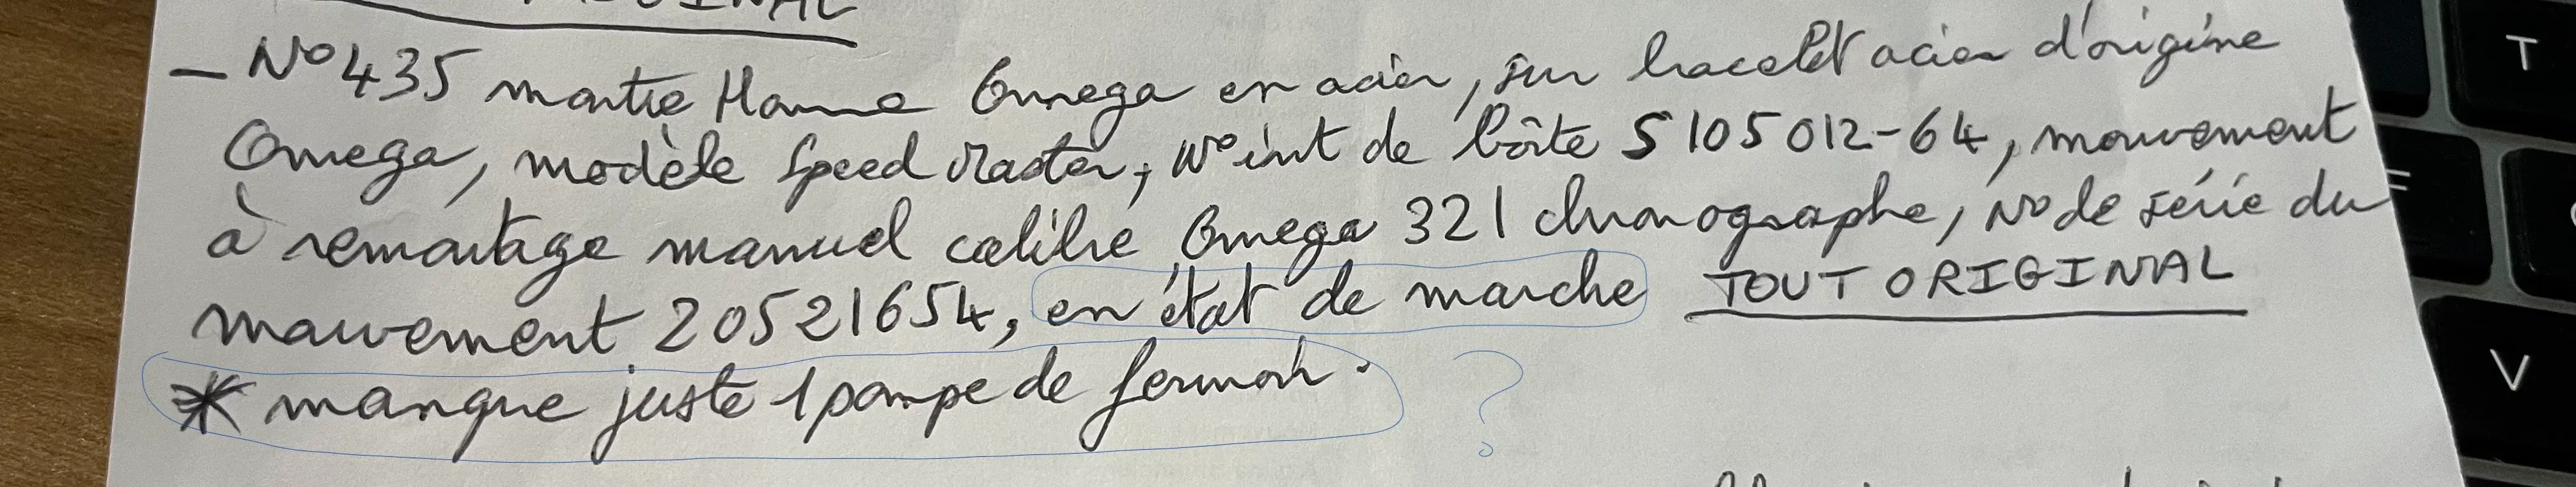 - N° 435 montre Homme Omega en acier, sur bracelet acier d'origine
Omega, modèle Speed Master, N° int de boîte S 105 012-64, mouvement
à remontage manuel calibre Omega 321 chronographe, N° de série du
mouvement 20521654, en état de marche TOUT ORIGINAL
* manque juste 1 pompe de fermoir.
?
T
F
V